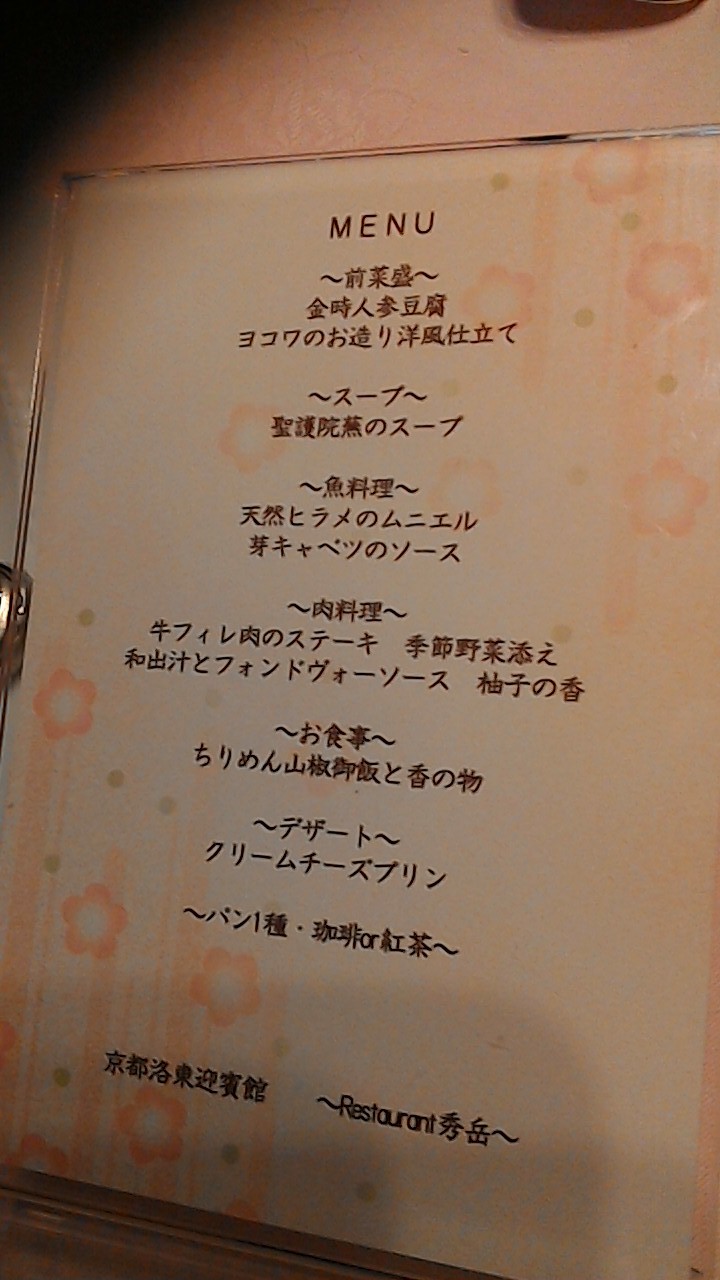 MENU
～前菜盛～
金時人参豆腐
ヨコワのお造り洋風仕立て
～スープ～
聖護院蕪のスープ
～魚料理～
天然ヒラメのムニエル
芽キャベツのソース
～肉料理～
牛フィレ肉のステーキ　季節野菜添え
和出汁とフォンドヴォーソース　柚子の香
～お食事～
ちりめん山椒御飯と香の物
～デザート～
クリームチーズプリン
～パン1種・珈琲or紅茶～
京都洛東迎賓館　～Restaurant秀岳～